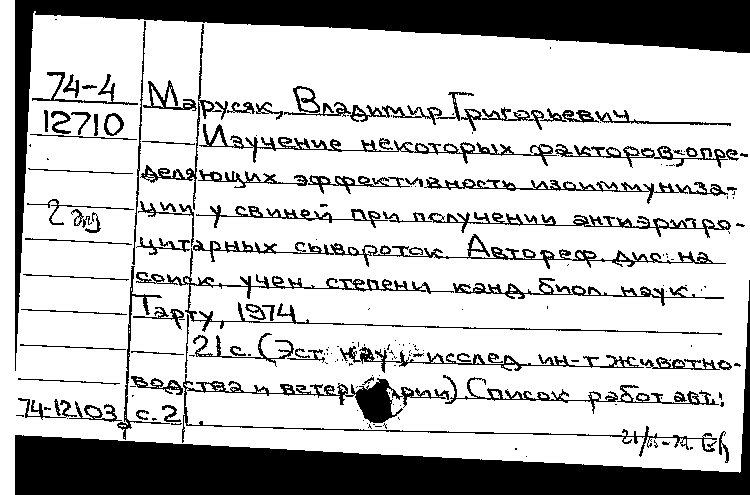 74-4
12710
2 экз
Марусяк, Владимир Григорьевич
Изучение некоторых факторов, опре-
деляющих эффективность изоиммуниза-
ции у свиней при получении антиэритро-
цитарных сывороток. Автореф. дис. на
соиск. учен. степени канд. биол. наук.
Тарту, 1974.
21 с. (Эст. науч.-исслед. ин-т животно-
водства и ветеринарии) Список работ авт.:
с. 21.
74-12103